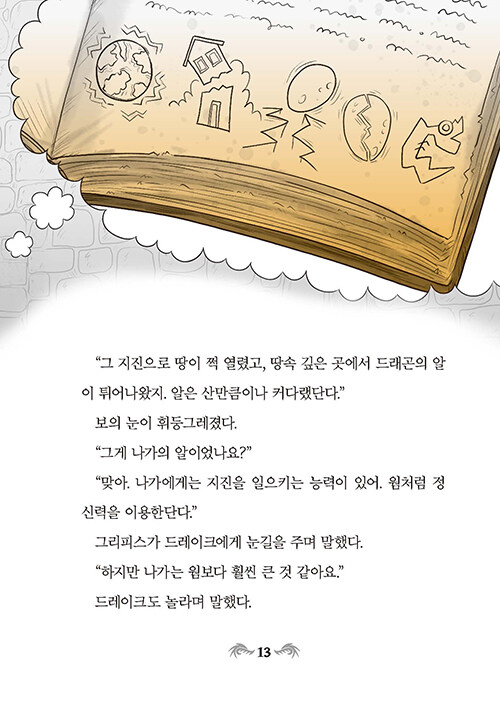 “그 지진으로 땅이 쩍 열렸고, 땅속 깊은 곳에서 드래곤의 알
이 튀어나왔지. 알은 산만큼이나 커다랬단다.”
보의 눈이 휘둥그레졌다.
“그게 나가의 알이었나요?”
“맞아. 나가에게는 지진을 일으키는 능력이 있어. 웜처럼 정
신력을 이용한단다.”
그리피스가 드레이크에게 눈길을 주며 말했다.
“하지만 나가는 웜보다 훨씬 큰 것 같아요.”
드레이크도 놀라며 말했다.
13